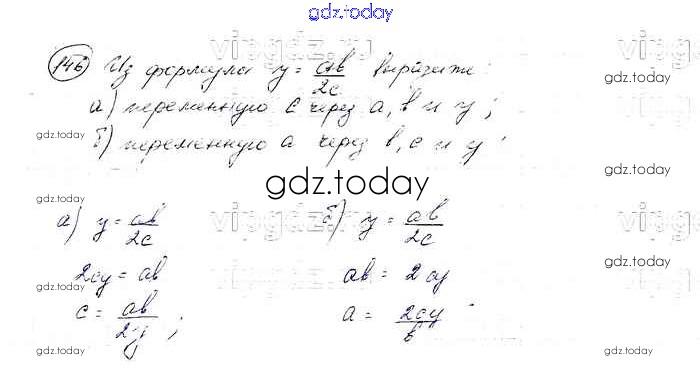 gdz.today
146 Из формулы y = ab/2c выразите:
а) переменную c через a, b и y;
б) переменную a через b, c и y
gdz.today
а) y = ab/2c б) y = ab/2c
2cy = ab ab = 2cy
c = ab/2y; a = 2cy/b
gdz.today
gdz.today
gdz.today
gdz.today
gdz.today
gdz.today
gdz.today
gdz.today